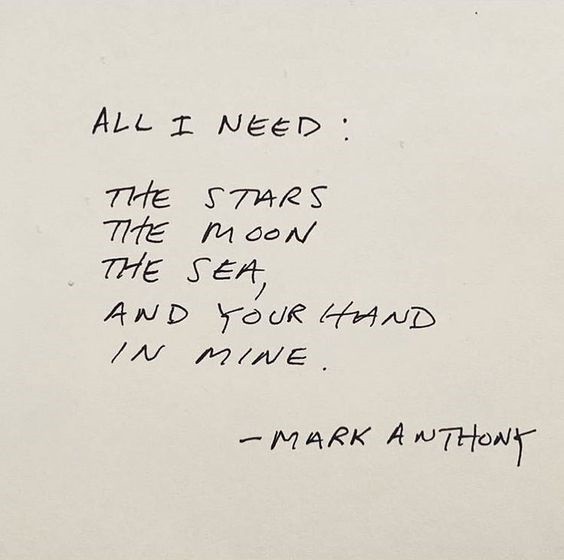 ALL I NEED:
THE STARS
THE MOON
THE SEA,
AND YOUR HAND
IN MINE.
- MARK ANTHONY